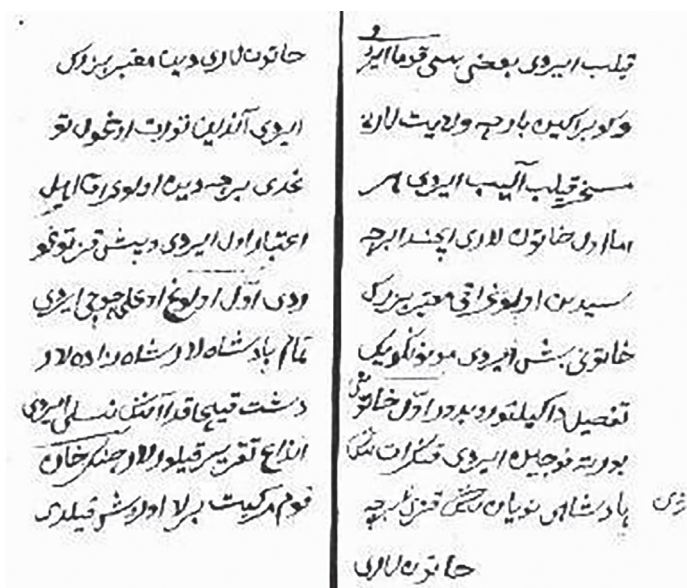 قیلب ایردی بعضی سی قدما ایر
و کوبراکین بارچه ولایت لارنی
مسخر قیلب آلیب ایردی هر
اما اول خاتون لاری ایچندا برچه
سیدین اولوغراقی معتبر بزرک
خاتونی بش ایردی
تفصیل داکیلتورو بدور اول خاتو
بورته فوجین ایردی قنکرات
پادشاهی نویان قزی برچه
خاتون لاری
خاتون لاری دین معتبر بزرک
ایردی آندین تورت اوغول تو
غدی برچه دین اولوی اقا اهل
اعتبار اول ایردی و بیش قز توغو
ردی اول اولوغ اوغلی جوجی ایردی
تمام پادشاه لار شاه زاده لار
دشت قبچاقدا آننک نسلی ایردی
انداغ تقریر قیلور لار جنکز خان
قوم مرکیت برلا اوروش قیلدی